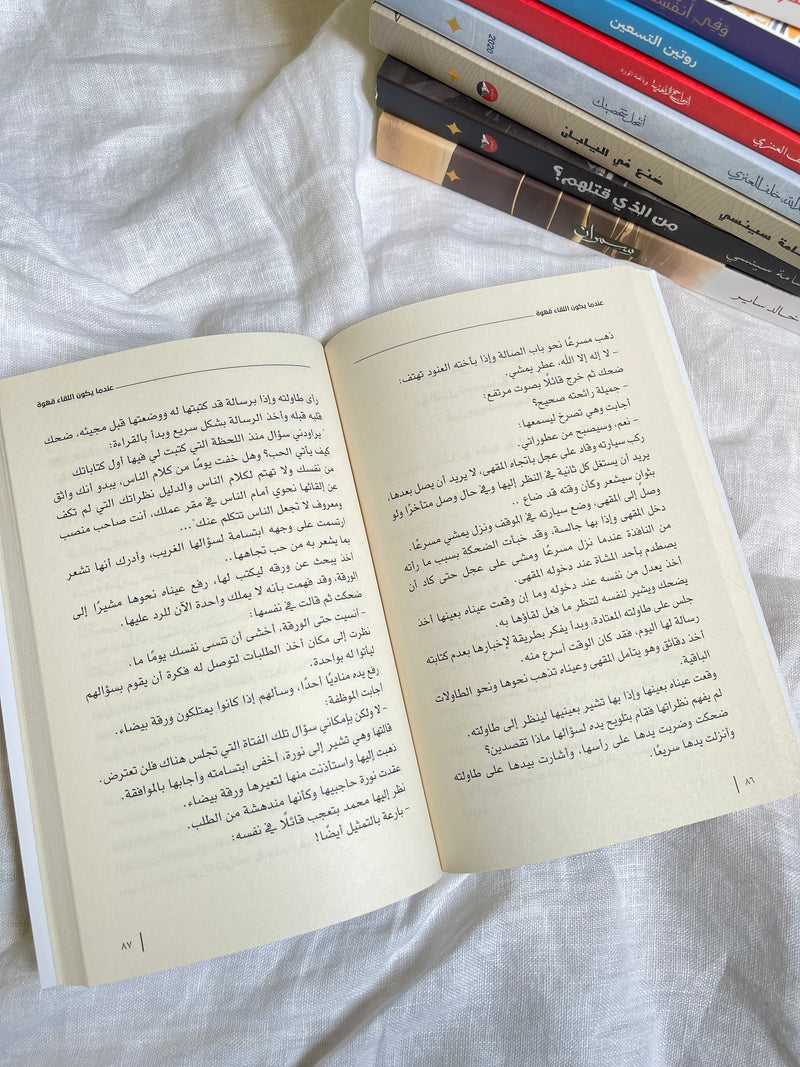 وفي أنفسكم
روتين التسعين
2020
صنع في اليابان
من الذي قتلهم؟
أسامة سينسي
خالد ساير
عندما يكون اللقاء قهوة
ذهب مسرعًا نحو باب الصالة وإذا بأخته العنود تهتف:
- لا إله إلا الله، عطر يمشي.
ضحك ثم خرج قائلًا بصوت مرتفع:
- جميلة رائحته صحيح؟
أجابت وهي تصرخ ليسمعها:
- نعم، وسيصبح من عطوراتي.
ركب سيارته وقاد على عجل باتجاه المقهى، لا يريد أن يصل بعدها،
يريد أن يستغل كل ثانية في النظر إليها وفي حال وصل متأخرًا ولو
بثوانٍ سيشعر وكأن وقته قد ضاع ..
وصل إلى المقهى، وضع سيارته في الموقف ونزل يمشي مسرعًا.
دخل المقهى وإذا بها جالسة، وقد خبأت الضحكة بسبب ما رأته
من النافذة عندما نزل مسرعًا ومشى على عجل حتى كاد أن
يصطدم بأحد المشاة عند دخوله المقهى.
أخذ يعدل من نفسه عند دخوله وما إن وقعت عيناه بعينها أخذ
يضحك ويشير لنفسه لتنظر ما فعل لقاؤها به.
جلس على طاولته المعتادة، وبدأ يفكر بطريقة لإخبارها بعدم كتابته
رسالة لها اليوم، فقد كان الوقت أسرع منه.
أخذ دقائق وهو يتأمل المقهى وعيناه تذهب نحوها ونحو الطاولات
الباقية.
وقعت عيناه بعينها وإذا بها تشير بعينيها لينظر إلى طاولته.
لم يفهم نظراتها فقام بتلويح يده لسؤالها ماذا تقصدين؟
ضحكت وضربت يدها على رأسها، وأشارت بيدها على طاولته
وأنزلت يدها سريعًا.
٨٦
عندما يكون اللقاء قهوة
رأى طاولته وإذا برسالة قد كتبتها له ووضعتها قبل مجيئه، ضحك
قلبه قبله وأخذ الرسالة بشكل سريع وبدأ بالقراءة:
"يراودني سؤال منذ اللحظة التي كتبت لي فيها أول كتاباتك
كيف يأتي الحب؟ وهل خفت يومًا من كلام الناس، يبدو أنك واثق
من نفسك ولا تهتم لكلام الناس والدليل نظراتك التي لم تكف
عن إلقائها نحوي أمام الناس في مقر عملك، أنت صاحب منصب
ومعروف لا تجعل الناس تتكلم عنك"...
ارتسمت على وجهه ابتسامة لسؤالها الغريب، وأدرك أنها تشعر
بما يشعر به من حب تجاهها..
أخذ يبحث عن ورقه ليكتب لها، رفع عيناه نحوها مشيرًا إلى
الورقة، وقد فهمت بأنه لا يملك واحدة الآن للرد عليها.
ضحكت ثم قالت في نفسها:
- أنسيت حتى الورقة، أخشى أن تنسى نفسك يومًا ما.
نظرت إلى مكان أخذ الطلبات لتوصل له فكرة أن يقوم بسؤالهم
ليأتوا له بواحدة.
رفع يده مناديًا أحدًا، وسألهم إذا كانوا يمتلكون ورقة بيضاء.
أجابت الموظفة:
- لا ولكن بإمكاني سؤال تلك الفتاة التي تجلس هناك فلن تعترض.
قالتها وهي تشير إلى نورة، أخفى ابتسامته وأجابها بالموافقة.
ذهبت إليها واستأذنت منها لتعيرها ورقة بيضاء.
عقدت نورة حاجبيها وكأنها مندهشة من الطلب.
نظر إليها محمد بتعجب قائلًا في نفسه:
- بارعة بالتمثيل أيضًا!
٨٧